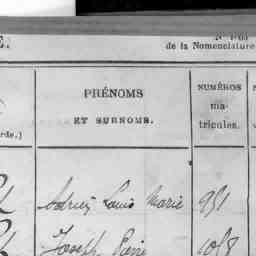 E.
de la Nomenclature
PRÉNOMS
ET SURNOMS.
NUMÉROS
ma-
tricules.
rde.)
Louis Marie 951
Joseph